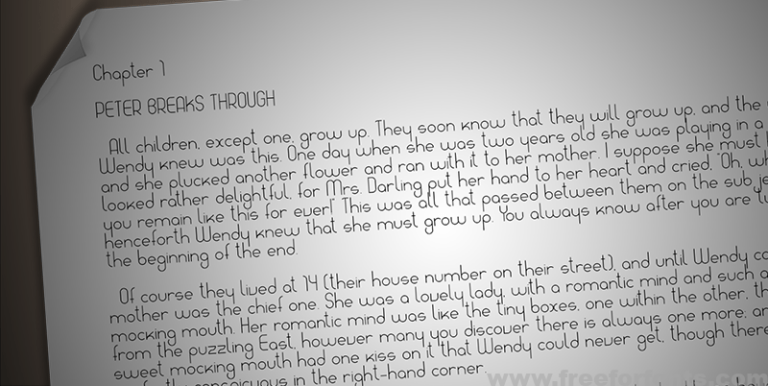 Chapter 1
PETER BREAKS THROUGH
All children, except one, grow up. They soon know that they will grow up, and the
Wendy knew was this. One day when she was two years old she was playing in a
and she plucked another flower and ran with it to her mother. I suppose she must
looked rather delightful, for Mrs. Darling put her hand to her heart and cried, "Oh, wh
you remain like this for ever!" This was all that passed between them on the subje
henceforth Wendy knew that she must grow up. You always know after you are tw
the beginning of the end.
Of course they lived at 14 (their house number on their street), and until Wendy ca
mother was the chief one. She was a lovely lady, with a romantic mind and such a
mocking mouth. Her romantic mind was like the tiny boxes, one within the other, th
from the puzzling East, however many you discover there is always one more; an
sweet mocking mouth had one kiss on it that Wendy could never get, though there
in the right-hand corner.